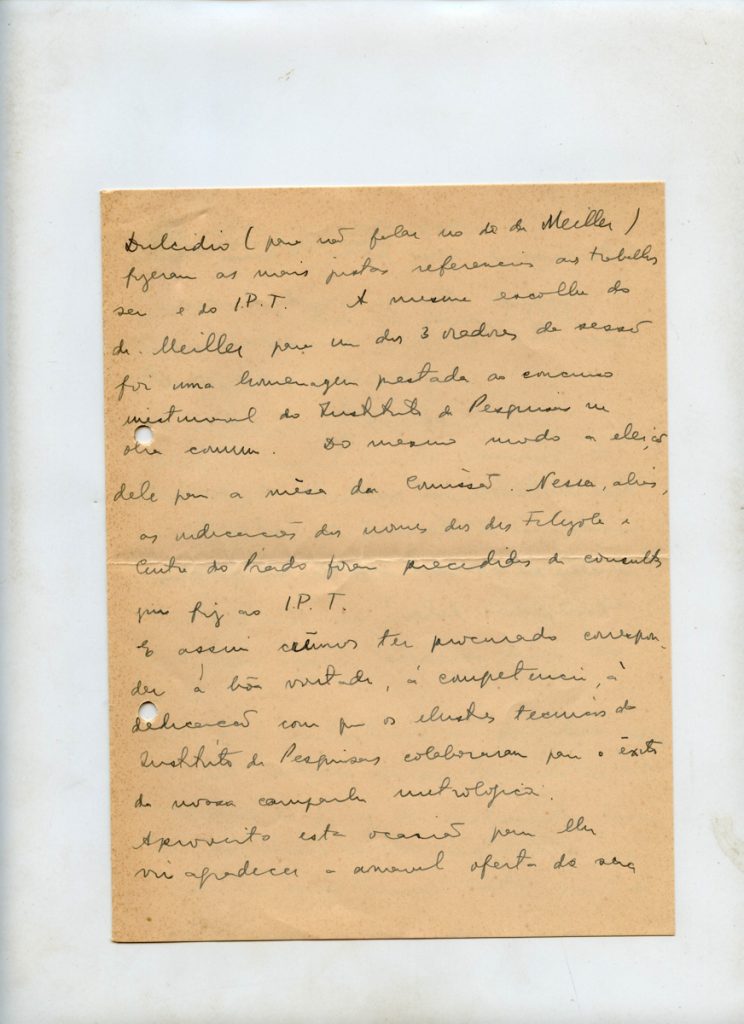 Dulcidio (para não falar no de dr Meiller)
fizeram as mais justas referencias aos trabalhos
seu e do I.P.T. A mesma escolha do
dr. Meiller para um dos 3 oradores da sessão
foi uma homenagem prestada ao concurso
do Instituto de Pesquisas na
obra commum. Do mesmo modo a eleição
dele para a mêsa da Comissão. Nessa, aliás,
as indicações dos nomes dos drs e
Cintra do Prado foram precedidas de consultas
que fiz ao I.P.T.
E assim crêmos ter procurado correspon-
der á bôa vontade, á competencia, á
dedicação com que os illustres technicos do
Instituto de Pesquisas colaboraram para o êxito
da nossa campanha metrologica.
Aproveito esta ocasião para lhe
vir agradecer a amavel oferta de seu